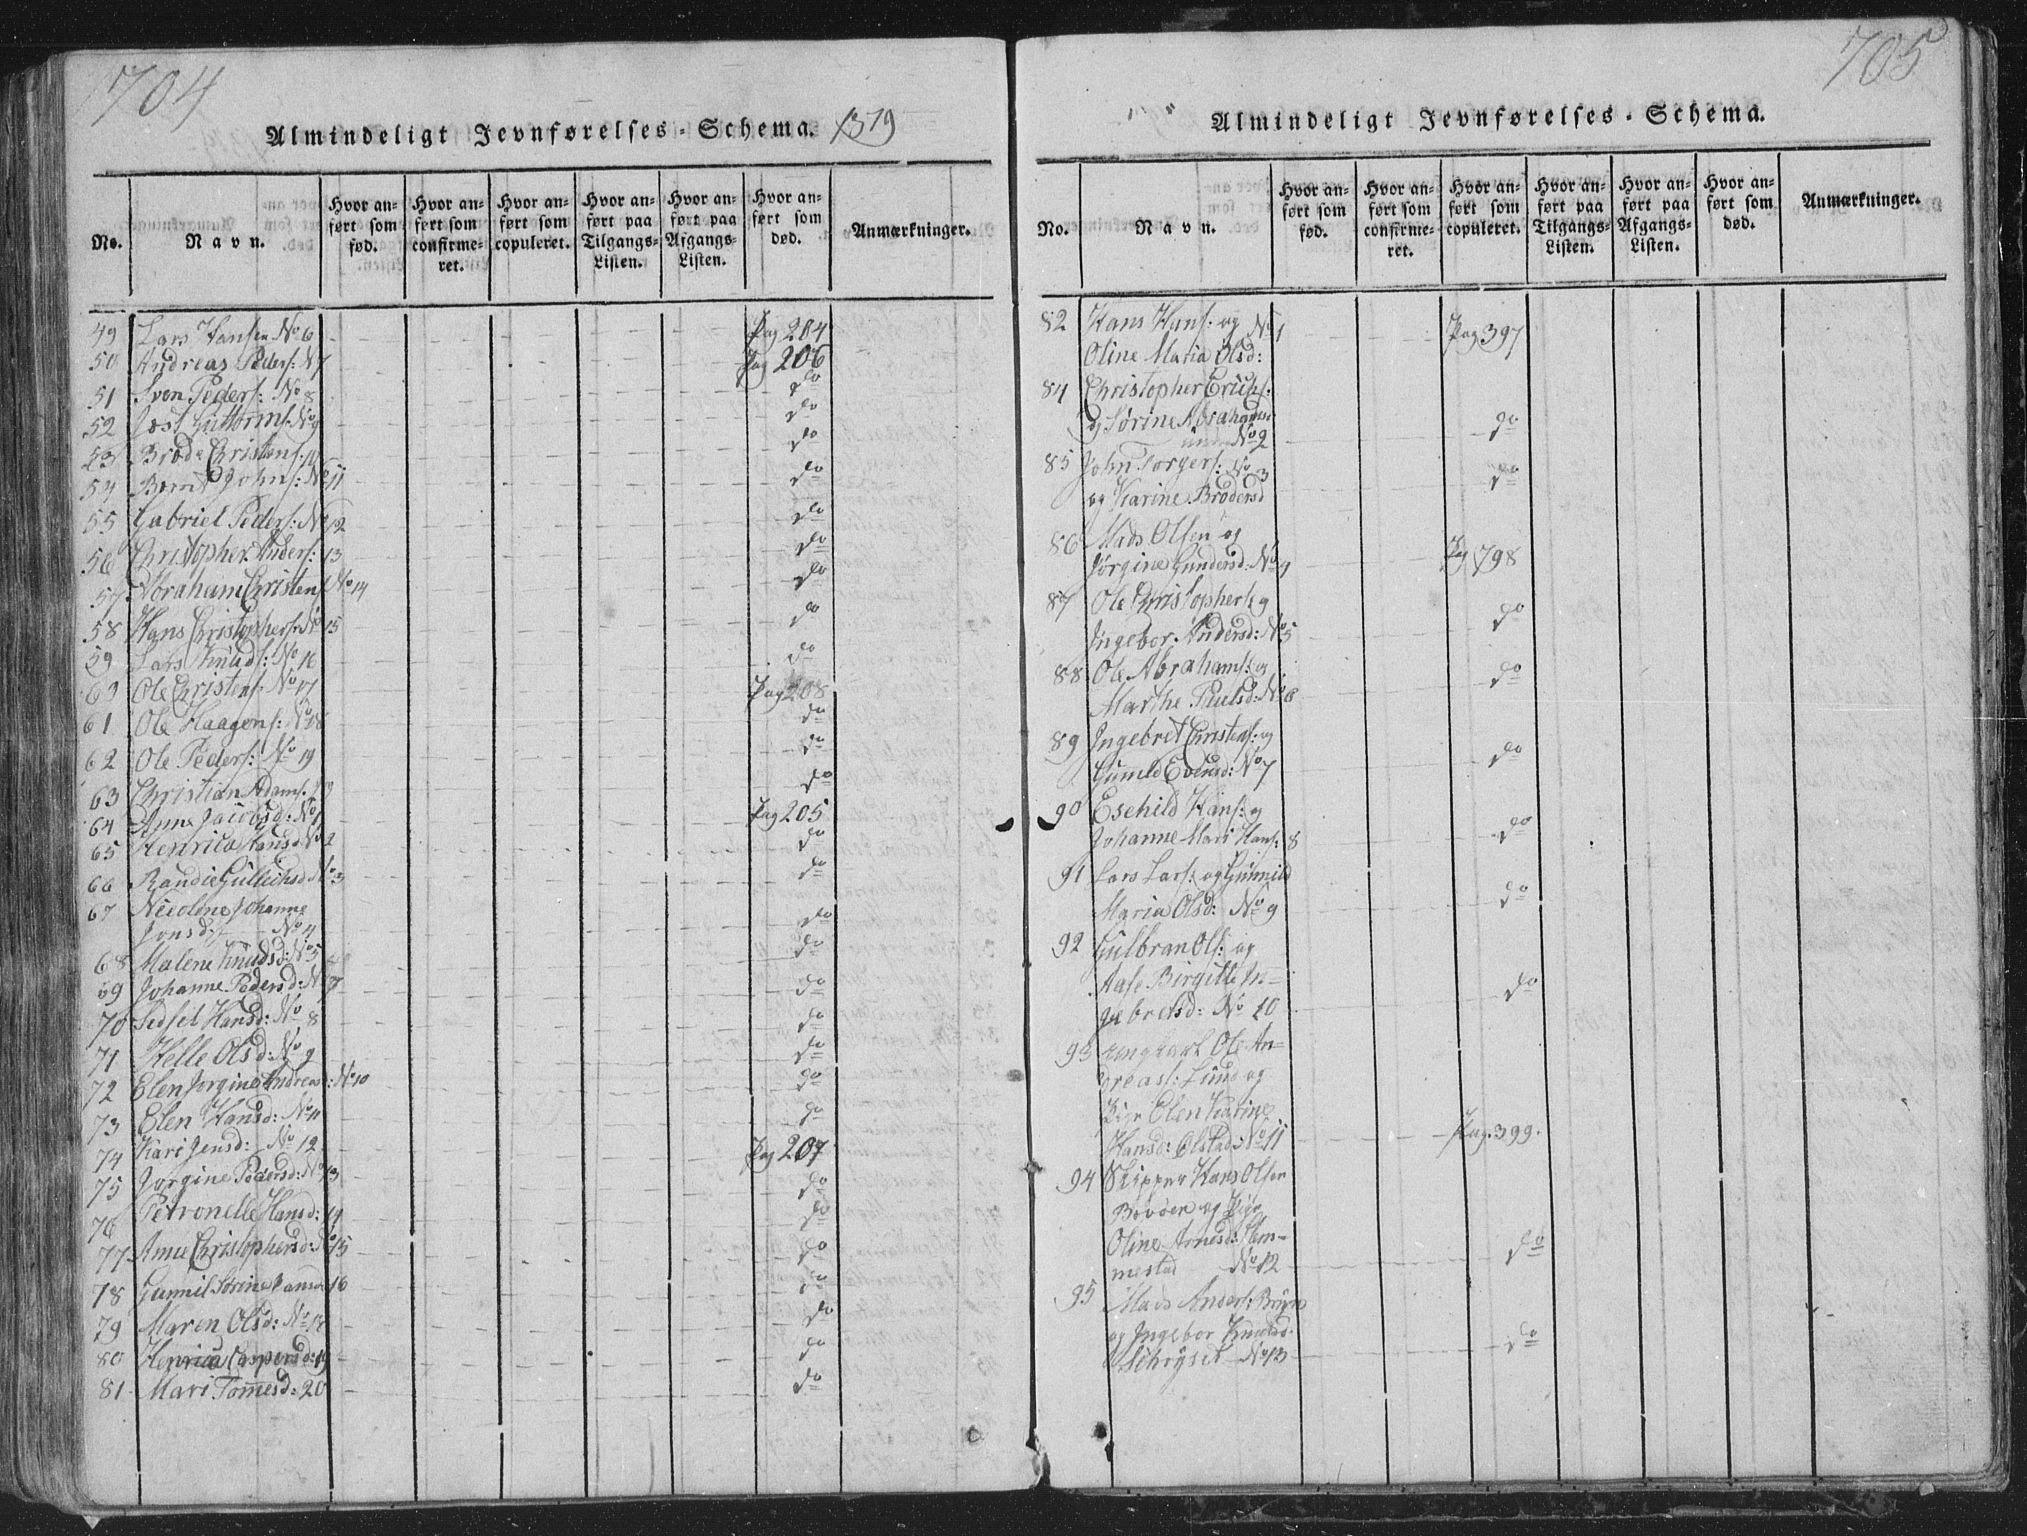 704
Almindeligt Jevnførelses-Schema. 1819
No.
Navn.
Hvor anført som fød.
Hvor anført som confirmeret.
Hvor anført som copuleret.
Hvor anført paa Tilgangs-Listen.
Hvor anført paa Afgangs-Listen.
Hvor anført som død.
Anmærkninger.
49 Lars Hansen No 6 Pag 204
50 Andreas Peders: N 7 Pag 206
51 Sven Peders: No 8 do
52 Jost Guttorms: No 9 do
53 Brode Christens: 10 do
54 Bernt Johns: No 11 do
55 Gabriel Peders: No 12 do
56 Christopher Anders: 13 do
57 Abraham Christens No 14 do
58 Hans Christophers: No 15 do
59 Lars Knuds: No 16 do
60 Ole Christens: No 17 Pag 208
61 Ole Haagens: No 18 do
62 Ole Peders: No 19 do
63 Christian Adams: do
64 Anne Jacobsd: No 1 Pag 205
65 Henrica Hansd No 2 do
66 Randie Gullichsd No 3 do
67 Nicoline Johanne
Jonsd: No 4 do
68 Malene Knudsd: No 5 do
69 Johanne Pedersd: No 7 do
70 Sedsel Hansd: No 8 do
71 Helle Olsd: No 9 do
72 Elen Jorgine Andreasd: No 10 do
73 Elen Hansd: No 11 do
74 Kari Jensd: No 12 Pag 207
75 Jorgine Pedersd: No 13 do
76 Petronelle Hansd: 14 do
77 Anne Christophersd: No 15 do
78 Gunnil Sørine Hansd 16 do
79 Maren Olsd: No 18 do
80 Henrica Caspersd: 19 do
81 Mari Tomesd: 20 do
705
Almindeligt Jevnførelses-Schema.
No.
Navn.
Hvor anført som fød.
Hvor anført som confirmeret.
Hvor anført som copuleret.
Hvor anført paa Tilgangs-Listen.
Hvor anført paa Afgangs-Listen.
Hvor anført som død.
Anmærkninger.
82 Hans Hans: og No 1 Pag 397
Oline Maria Olsd:
84 Christopher Erichs:
og Sørine Abrahams: do
No 2
85 John Torgers: No 3 do
og Karine Brodersd
86 Mads Olsen og
Jørgine Gundersd: No 4 Pag 798
87 Ole Christophers: og
Ingebor Andersd: No 5 do
88 Ole Abrahams: og
Marthe Paulsd: No 6 do
89 Ingebret Christens: og
Gunild Evensd: No 7 do
90 Eschild Hans: og
Johanne Mari Hans: 8 do
91 Lars Lars: og Gunnild
Maria Olsd: No 9 do
92 Gulbran Ols: og
Aase Birgitte In-
gebretsd: No 10 do
93 Ungkarl Ole An-
dreass: Lund og
Pige Elen Karine
Hansd: Olstad No 11 Pag. 399.
94 Skipper Hans Olsen
og Pige
Oline Arnesd: Hem-
mestad No 12 do
95 Mads Anders: Bruun
og Ingebor Knudsd:
No 13 do